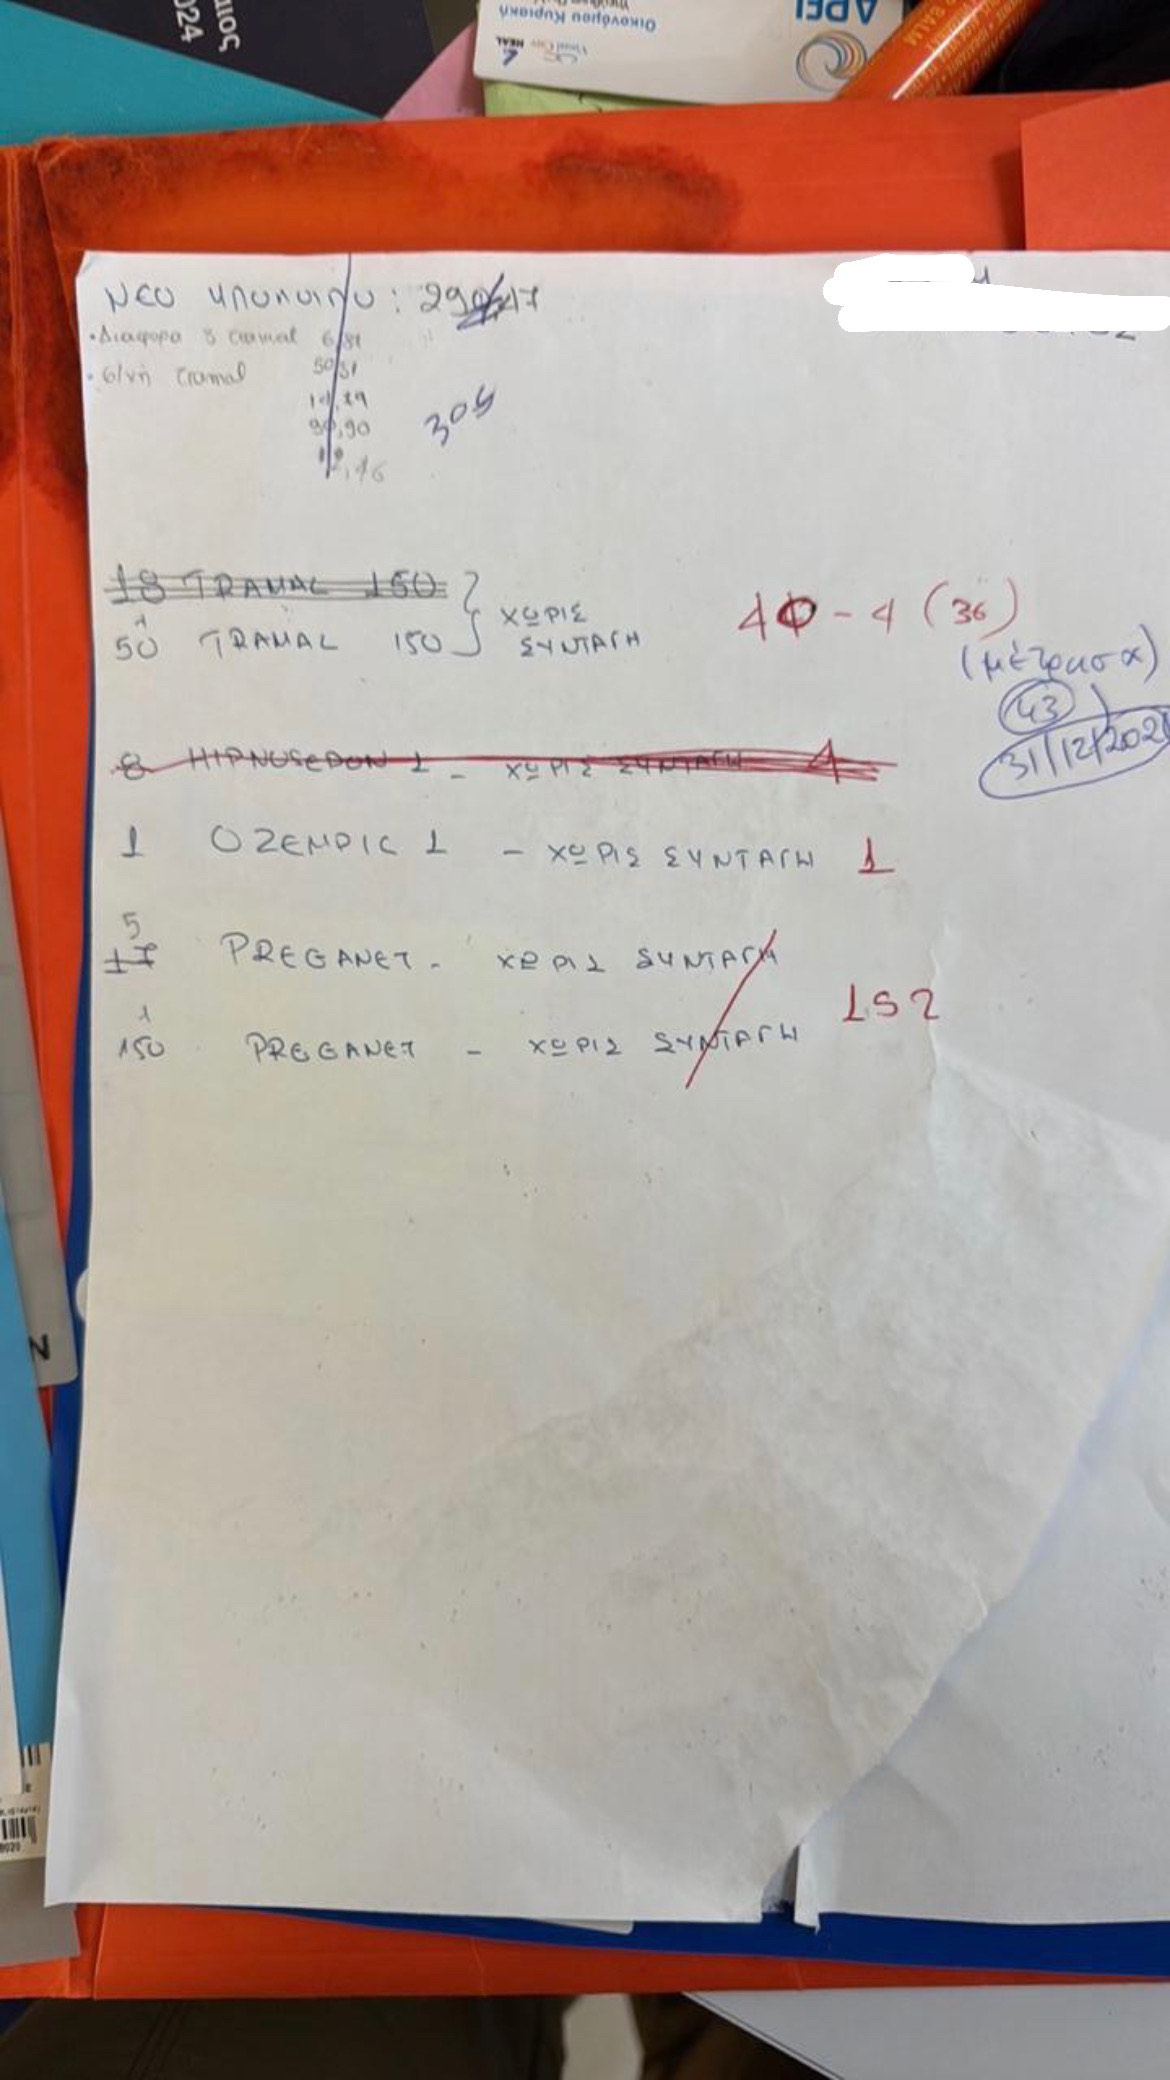 024
Οικονόμου Κυριακή
ΝΕΟ ΥΠΟΛΟΙΠΟ: 290,17
• Διαφορα 3 tramal 6,81
• 6/νη tramal 50,51
90,90
12,46
305
18 TRAMAL 150
50 TRAMAL 150 ΧΩΡΙΣ ΣΥΝΤΑΓΗ
40 - 4 (36)
(μέτρησα)
43
31/12/202
8 HIPNOSEDON 1 - ΧΩΡΙΣ ΣΥΝΤΑΓΗ 4
1 OZEMPIC 1 - ΧΩΡΙΣ ΣΥΝΤΑΓΗ 1
5
17 PREGANET - ΧΩΡΙΣ ΣΥΝΤΑΓΗ
152
1
150 PREGANET - ΧΩΡΙΣ ΣΥΝΤΑΓΗ